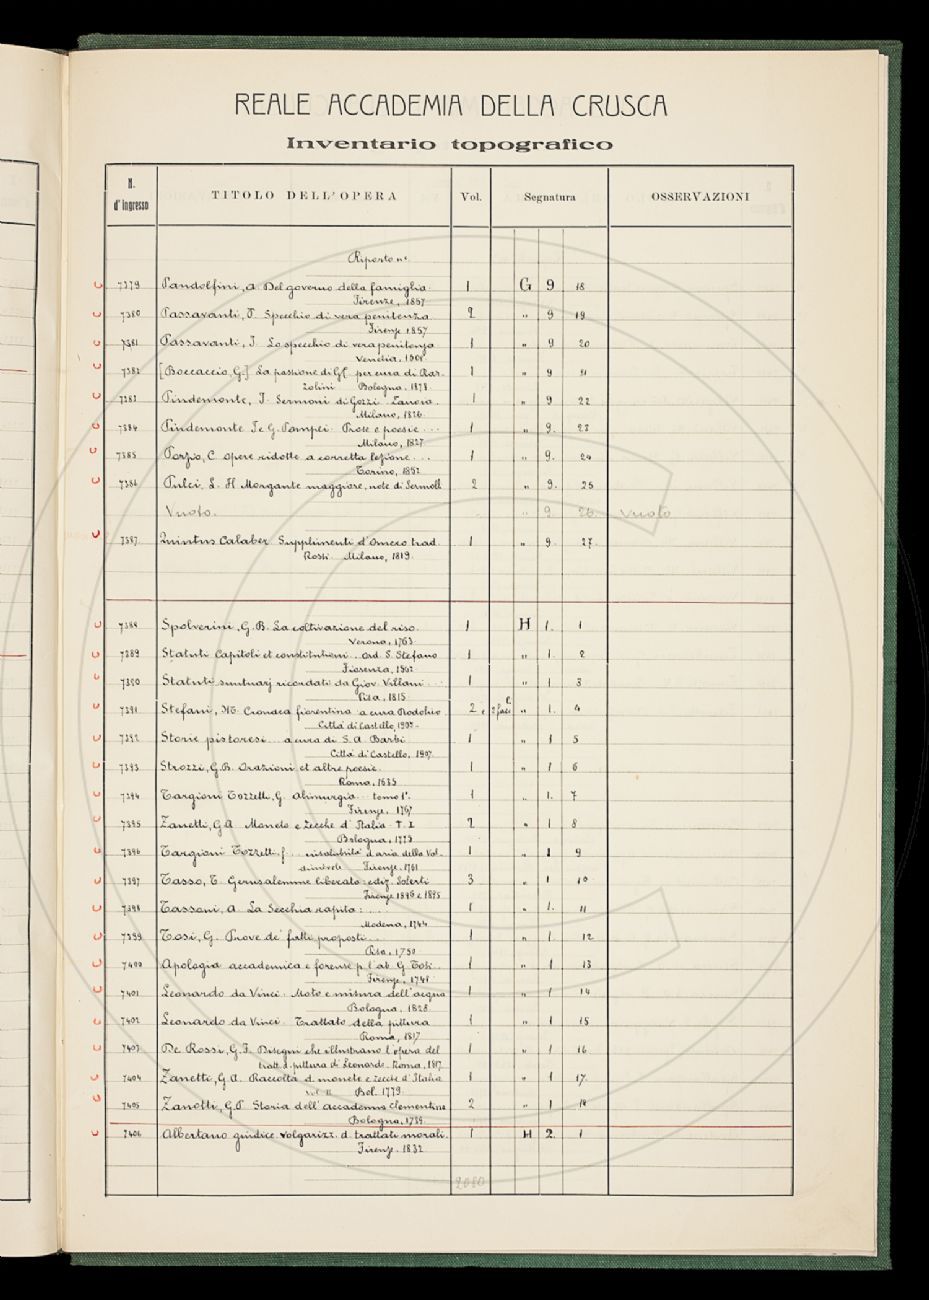 REALE ACCADEMIA DELLA CRUSCA
Inventario topografico
N. d'ingresso TITOLO DELL'OPERA Vol. Segnatura OSSERVAZIONI
Riporto n.
7379 Pandolfini, A. Del governo della famiglia 1 G 9 18
Firenze, 1857
7380 Passavanti, J. Specchio di vera penitenza 2 " 9 19
Firenze 1857
7381 Passavanti, J. Lo specchio di vera penitenza 1 " 9 20
Venezia,
7382 [Boccaccio, G.] La passione di G.C. per cura di Raz- 1 " 9 21
zolini Bologna. 1878
7383 Pindemonte, I. Sermoni di Gozzi Zanoia. 1 " 9 22
Milano, 1826
7384 Pindemonte I. e G. Pompei. Prose e poesie ... 1 " 9. 23
Milano, 1827
7385 Porzio, C. opere ridotte a corretta lezione ... 1 " 9. 24
Torino, 1852
7386 Pulci, L. Il Morgante maggiore, note di Sermolli 2 " 9. 25
Vuoto. " 9 26 Vuoto
7387 Quintus Calaber Supplimenti d'Omero trad. 1 " 9. 27
Rossi Milano, 1819
7388 Spolverini, G. B. La coltivazione del riso. 1 H 1. 1
Verona, 1763
7389 Statuti Capitoli et constitutioni .. Ord. S. Stefano 1 " 1. 2
Fiorenza, 1562
7390 Statuti suntuarj ricordati da Giov. Villani ... 1 " 1 3
Pisa, 1815
7391 Stefani, M. Cronaca fiorentina a cura Rodolico 2 e 2 fasc. " 1. 4
Città di Castello, 1903-
7392 Storie pistoresi a cura di S. A. Barbi 1 " 1 5
Città di Castello, 1907
7393 Strozzi, G. B. Orazioni et altre poesie. 1 " 1 6
Roma, 1635
7394 Targioni Tozzetti, G. Alimurgia tomo 1°. 1 " 1. 7
Firenze, 1767
7395 Zanetti, G A Monete e zecche d'Italia T. I 2 " 1 8
Bologna, 1775
7396 Targioni Tozzetti, insalubrità d'aria della Val- 1 " 1 9
dinievole Firenze, 1761
7397 Tasso, T. Gerusalemme liberata: ediz. Solerti 3 " 1 10
Firenze 1895 e 1895
7398 Tassoni, A. La Secchia rapita: ... 1 " 1. 11
Modena, 1744
7399 Tosi, G. Prove de' fatti proposti ... 1 " 1. 12
Pisa, 1750
7400 Apologia accademica e forense p. l'ab. G. Tosi .. 1 " 1 13
Firenze, 1741
7401 Leonardo da Vinci. Moto e misura dell'acqua 1 " 1 14
Bologna, 1828
7402 Leonardo da Vinci. Trattato della pittura 1 " 1 15
Roma, 1817
7403 De Rossi, G. F. Disegni che illustrano l'opera del 1 " 1 16
tratt. d. pittura di Leonardo. Roma, 1817
7404 Zanetti, G. A. Raccolta d. monete e zecche d'Italia 1 " 1 17.
vol. II Bol. 1779
7405 Zanotti, G. P. Storia dell'accademia Clementina 2 " 1 18
Bologna, 1739
7406 Albertano giudice. Volgarizz. d. trattati morali. 1 H 2. 1
Firenze. 1832
2080